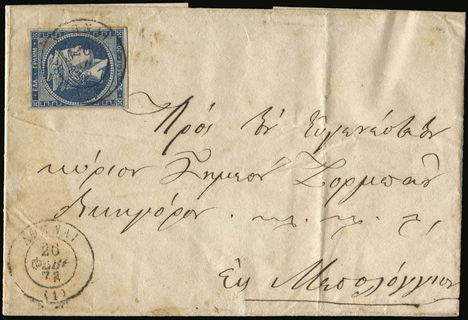 ΕΛΛ. ΓΡΑΜΜ.
Πρὸς τὸν Εὐγενέστατον
κύριον Σημεὸν Ζορμπᾶν
δικηγόρον
Εἰς Μεσολόγγιον
ΑΘΗΝΑΙ
26
ΦΕΒΡ
(1)